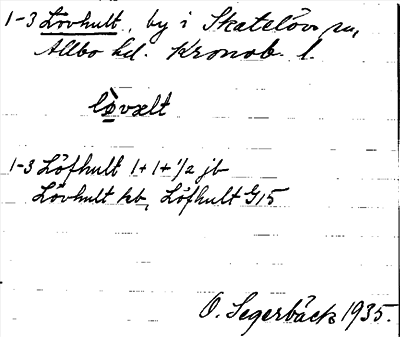 1-3 Lövhult, by i Skatelövs sn,
Allbo hd. Kronob. l.
lòvxlt
1-3 Löfhult 1+1+1/2 jb
Lövhult kb, Löfhult G15
O. Segerbäck 1935.